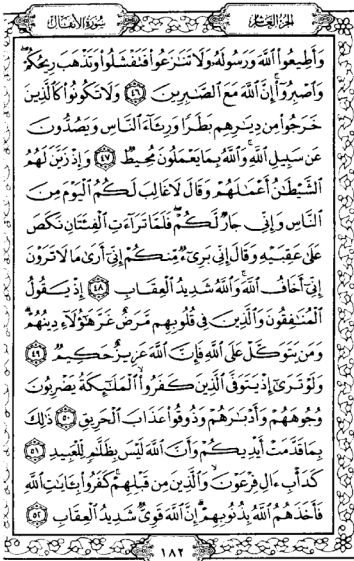 الجزء العاشر
سورة الأنفال
وَأَطِيعُوا۟ ٱللَّهَ وَرَسُولَهُۥ وَلَا تَنَٰزَعُوا۟ فَتَفْشَلُوا۟ وَتَذْهَبَ رِيحُكُمْ ۖ
وَٱصْبِرُوٓا۟ ۚ إِنَّ ٱللَّهَ مَعَ ٱلصَّٰبِرِينَ ٤٦ وَلَا تَكُونُوا۟ كَٱلَّذِينَ
خَرَجُوا۟ مِن دِيَٰرِهِم بَطَرًا وَرِئَآءَ ٱلنَّاسِ وَيَصُدُّونَ
عَن سَبِيلِ ٱللَّهِ ۚ وَٱللَّهُ بِمَا يَعْمَلُونَ مُحِيطٌ ٤٧ وَإِذْ زَيَّنَ لَهُمُ
ٱلشَّيْطَٰنُ أَعْمَٰلَهُمْ وَقَالَ لَا غَالِبَ لَكُمُ ٱلْيَوْمَ مِنَ
ٱلنَّاسِ وَإِنِّى جَارٌ لَّكُمْ ۖ فَلَمَّا تَرَآءَتِ ٱلْفِئَتَانِ نَكَصَ
عَلَىٰ عَقِبَيْهِ وَقَالَ إِنِّى بَرِىٓءٌ مِّنكُمْ إِنِّىٓ أَرَىٰ مَا لَا تَرَوْنَ
إِنِّىٓ أَخَافُ ٱللَّهَ ۚ وَٱللَّهُ شَدِيدُ ٱلْعِقَابِ ٤٨ إِذْ يَقُولُ
ٱلْمُنَٰفِقُونَ وَٱلَّذِينَ فِى قُلُوبِهِم مَّرَضٌ غَرَّ هَٰٓؤُلَآءِ دِينُهُمْ ۗ
وَمَن يَتَوَكَّلْ عَلَى ٱللَّهِ فَإِنَّ ٱللَّهَ عَزِيزٌ حَكِيمٌ ٤٩
وَلَوْ تَرَىٰٓ إِذْ يَتَوَفَّى ٱلَّذِينَ كَفَرُوا۟ ۙ ٱلْمَلَٰٓئِكَةُ يَضْرِبُونَ
وُجُوهَهُمْ وَأَدْبَٰرَهُمْ وَذُوقُوا۟ عَذَابَ ٱلْحَرِيقِ ٥٠ ذَٰلِكَ
بِمَا قَدَّمَتْ أَيْدِيكُمْ وَأَنَّ ٱللَّهَ لَيْسَ بِظَلَّٰمٍ لِّلْعَبِيدِ ٥١
كَدَأْبِ ءَالِ فِرْعَوْنَ ۙ وَٱلَّذِينَ مِن قَبْلِهِمْ ۚ كَفَرُوا۟ بِـَٔايَٰتِ ٱللَّهِ
فَأَخَذَهُمُ ٱللَّهُ بِذُنُوبِهِمْ ۗ إِنَّ ٱللَّهَ قَوِىٌّ شَدِيدُ ٱلْعِقَابِ ٥٢
١٨٢